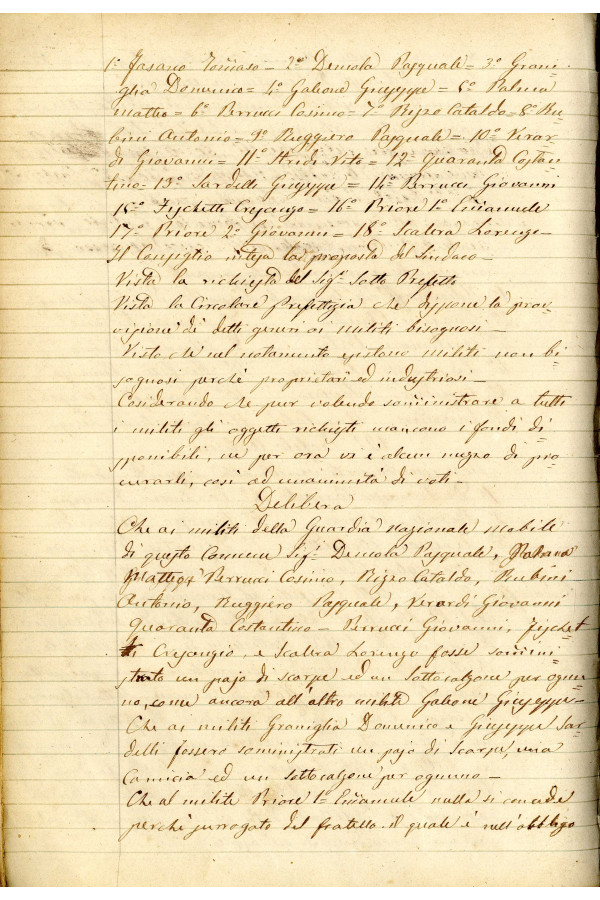 1º Fasano Tom̄aso = 2º Demola Pasquale = 3º Grani=
glia Domenico = 4º Galeone Giuseppe = 5º Palma
Matteo = 6º Perrucci Cosimo = 7º Rizzo Cataldo = 8º Ru=
bini Antonio = 9º Ruggiero Pasquale = 10º Verar=
di Giovanni = 11º Stridi Vito = 12º Quaranta Costan
tino = 13º Sardelli Giuseppe = 14º Perrucci Giovanni
15º Fischetti Cresanzio = 16º Priore 1º Em̄anuele
17º Priore 2º Giovanni = 18º Scalera Lorenzo =
Il Consiglio intesa la proposta del Sindaco =
Vista la richiesta del Sigr Sotto Prefetto
Vista la Circolare Prefettizia che dispone la prov=
visione di detti generi ai militi bisognosi =
Visto che nel notamento esistono militi non bi=
sognosi perchè proprietarii ed industriosi =
Cosiderando che pur volendo som̄inistrare a tutti
i militi gli oggetti richiesti mancono i fondi di=
sponibili, nè per ora vi è alcun mezzo di pro=
curarli, così ad unanimità di voti =
Delibera
Che ai militi della Guardia nazionale mobile
di questo Comune Sigri Demola Pasquale, Palma
Matteo, Perrucci Cosimo, Rizzo Cataldo, Rubini
Antonio, Ruggiero Pasquale, Verardi Giovanni
Quaranta Costantino = Perrucci Giovanni, Fischet=
ti Cresanzio, e Scalera Lorenzo fosse som̄ini=
strato un pajo di scarpe ed un sottocalzone per ognu=
no, come ancora all'altro milite Galeone Giuseppe =
Che ai militi Graniglia Domenico e Giuseppe Sar=
delli fossero somministrati un pajo di Scarpe, una
Camicia ed un sottocalzone per ognuno =
Che al milite Priore 1º Em̄anuele nulla si concede
perchè surrogato del fratello il quale è nell'obbligo